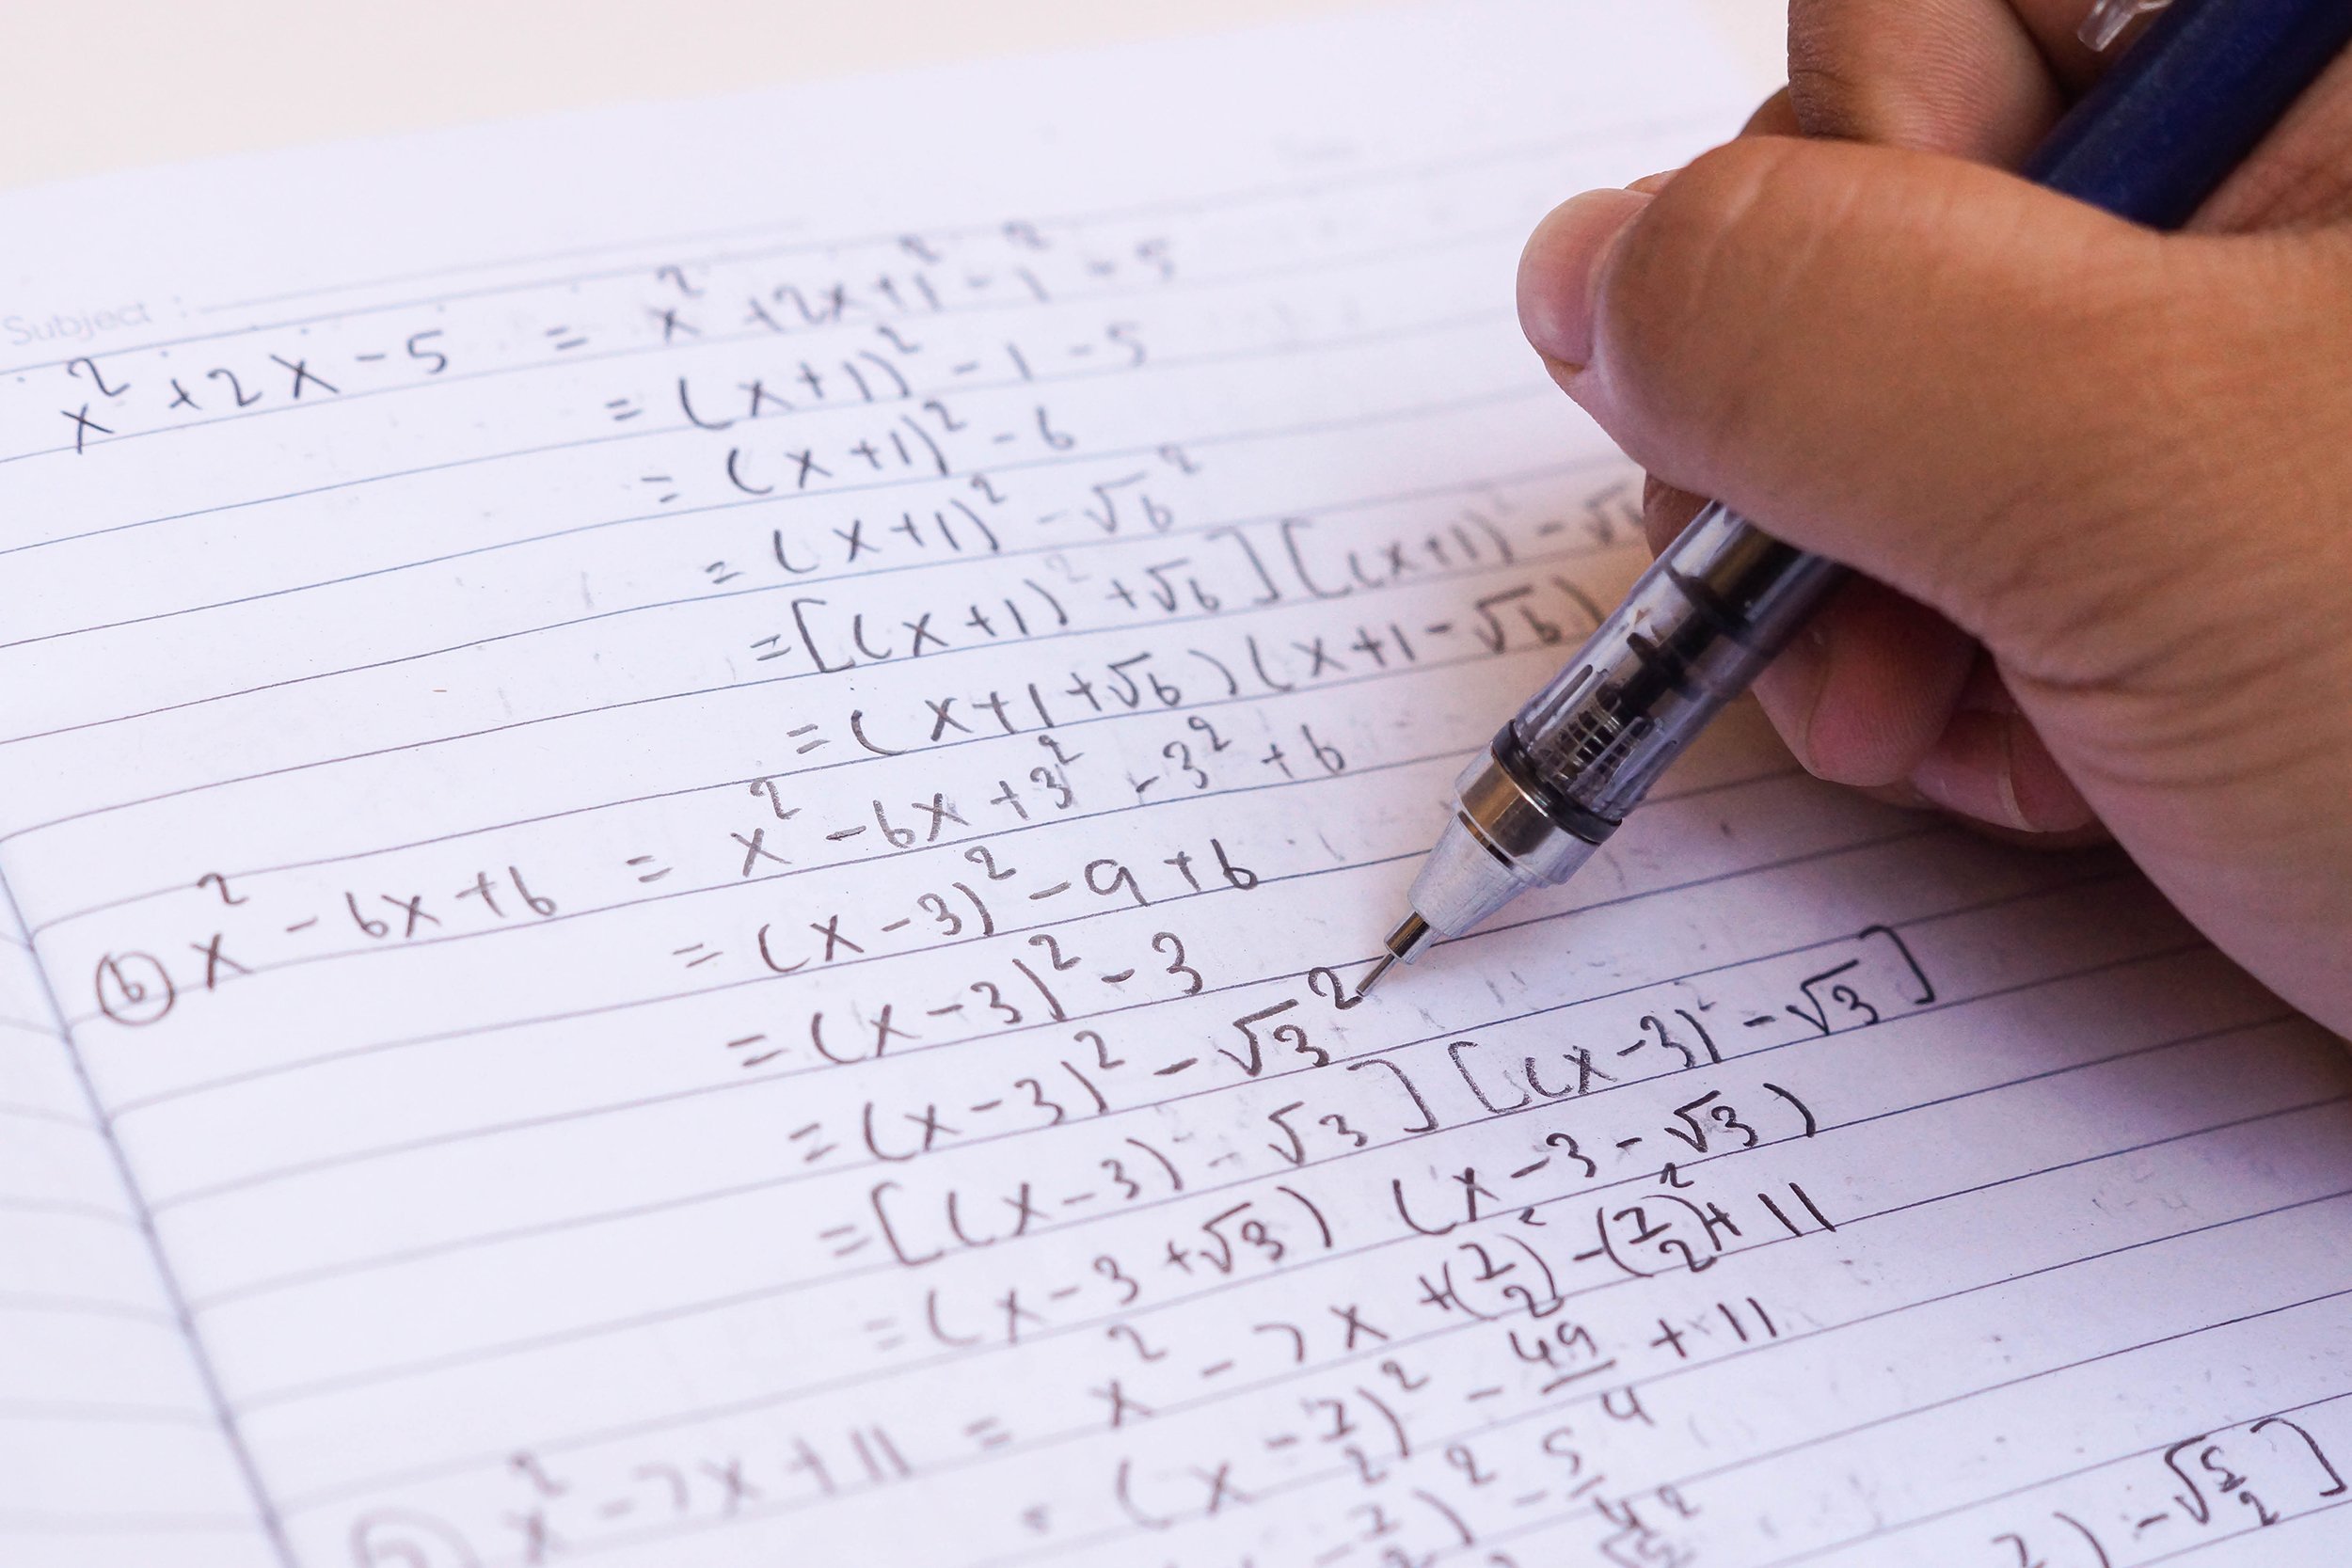 Subject :
x² + 2x - 5 = x² + 2x + 1² - 1² - 5
= (x+1)² - 1 - 5
= (x+1)² - 6
= (x+1)² - √6²
= [(x+1)² + √6] [(x+1)² - √6
= (x+1+√6)(x+1-√6)
ⓑ x² - 6x + 6 = x² - 6x + 3² - 3² + 6
= (x-3)² - 9 + 6
= (x-3)² - 3
= (x-3)² - √3²
= [(x-3)² - √3] [(x-3)² - √3]
= (x-3+√3) (x-3-√3)
x² - 7x + 11 = x² - 7x + (7/2)² - (7/2)² + 11
= (x - 7/2)² - 49/4 + 11
7/2)² - 5/4
) - √5/2]